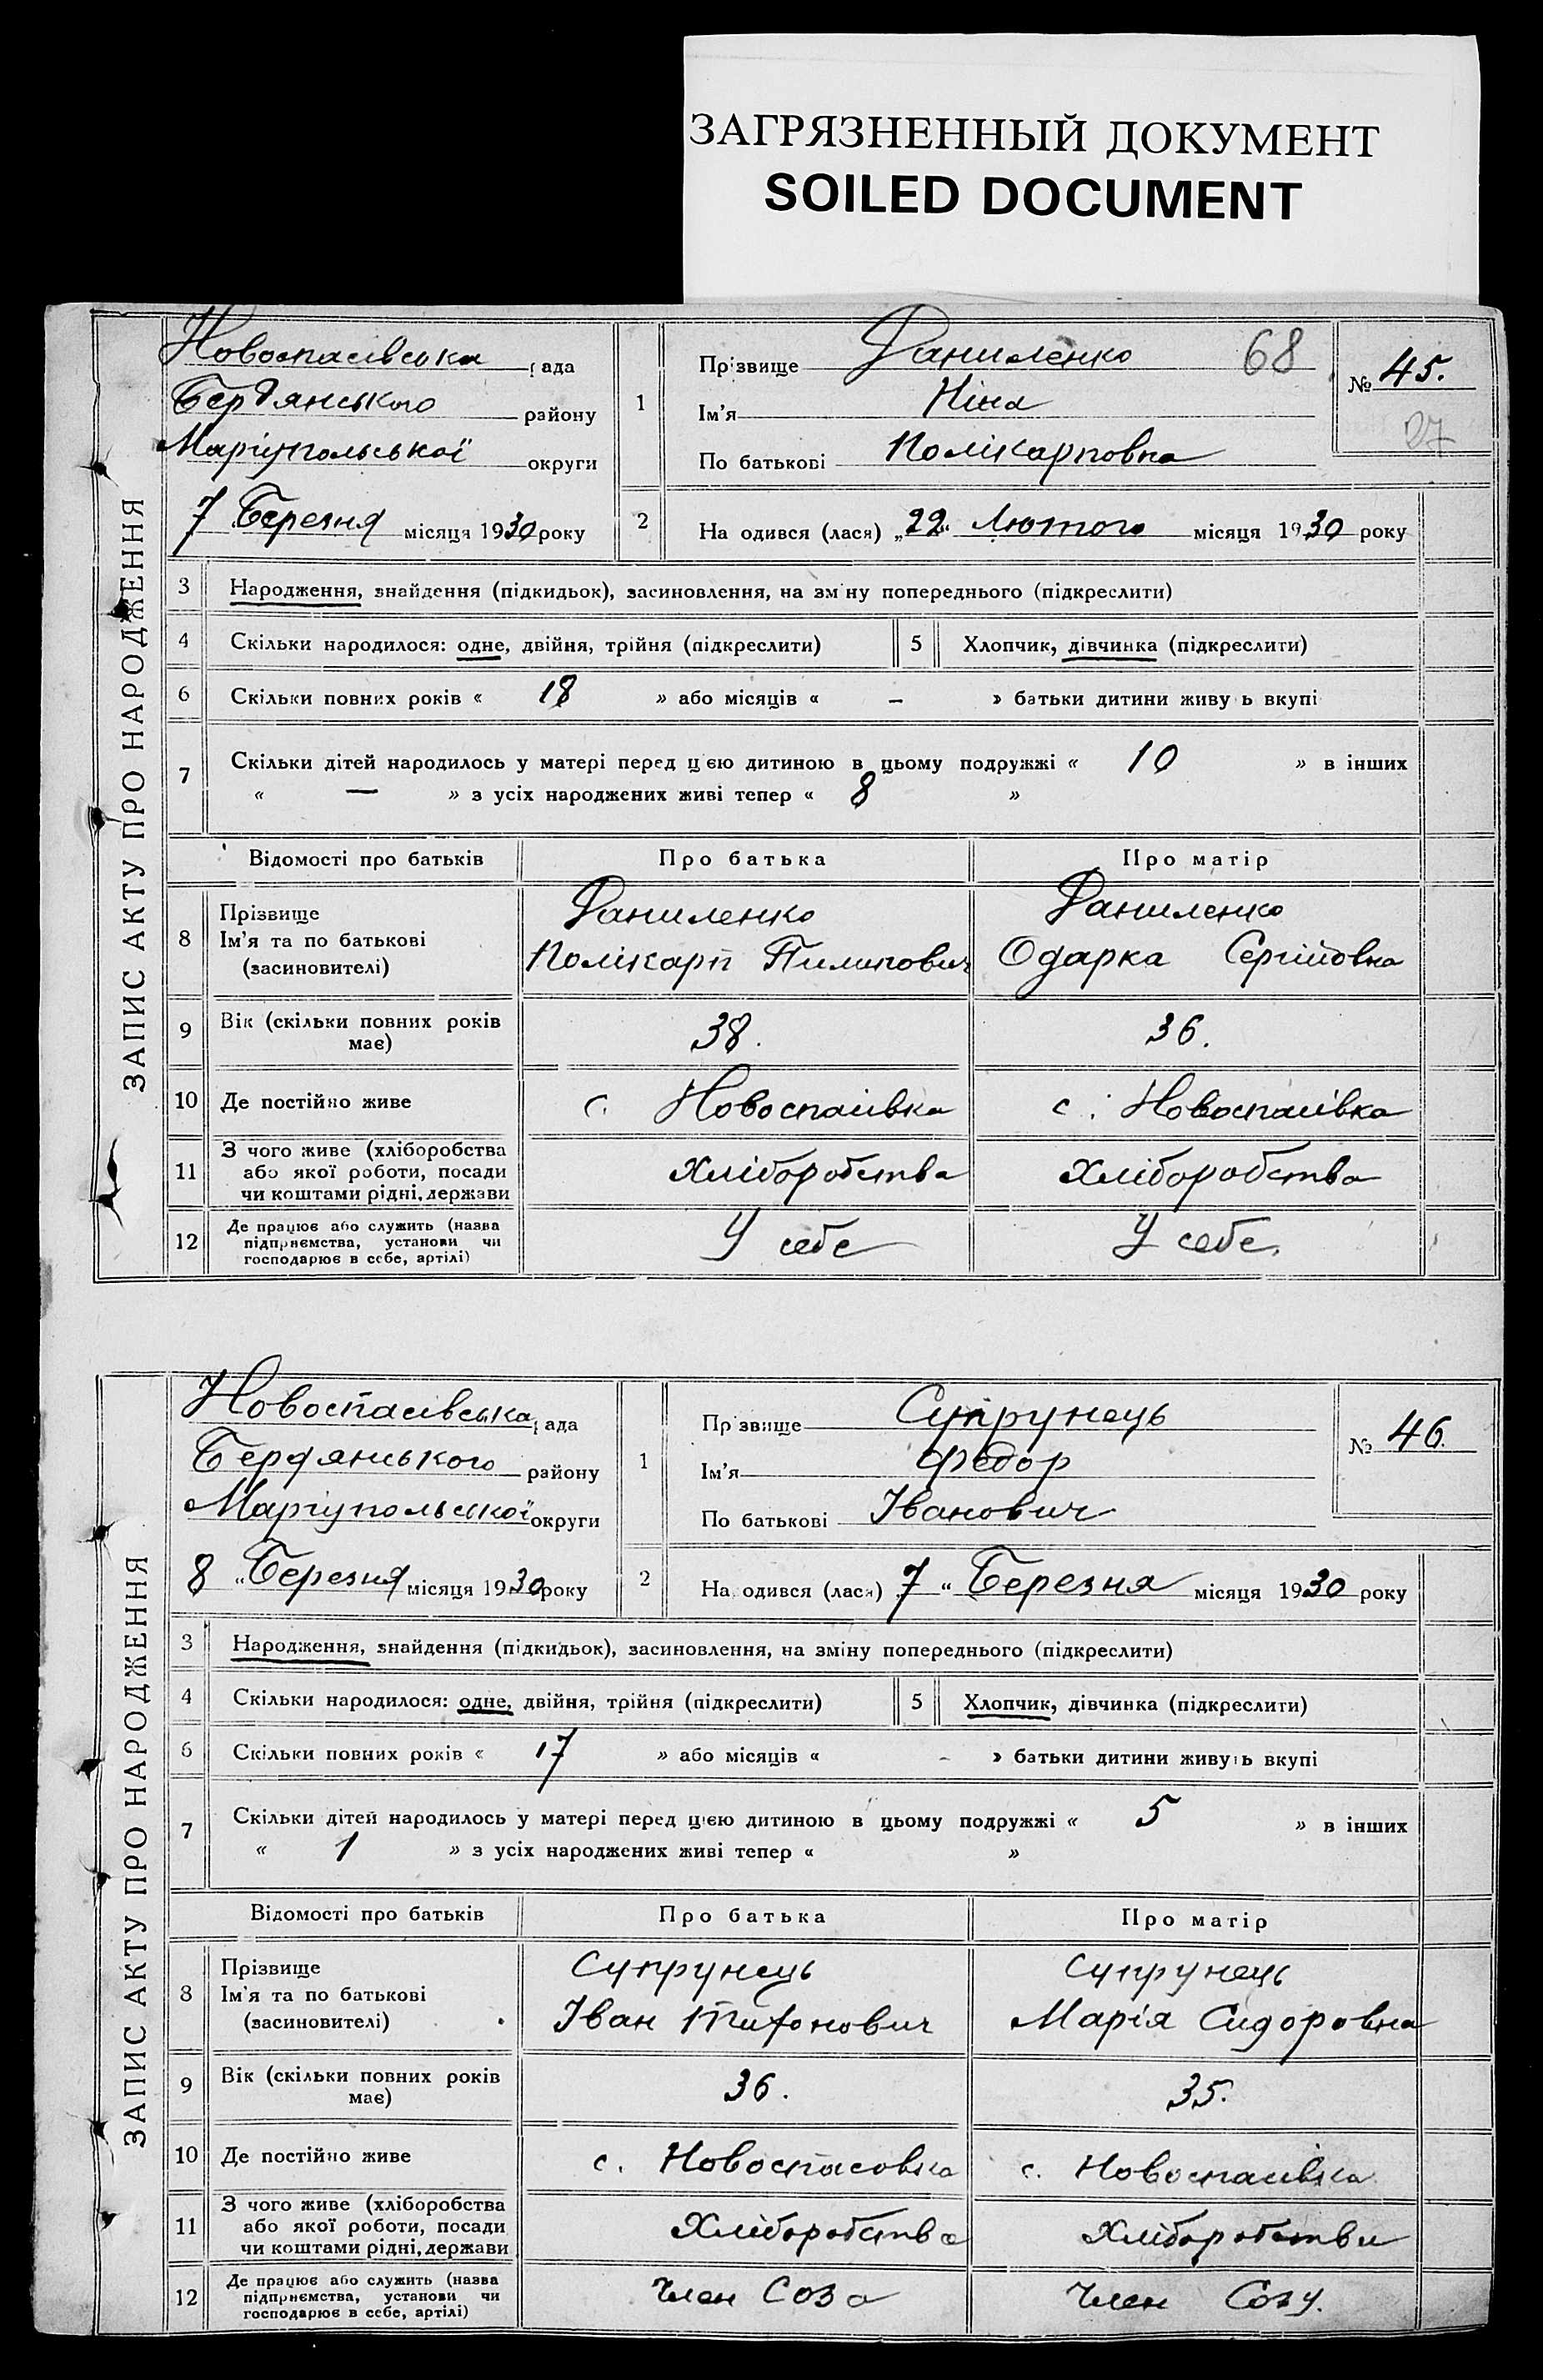 ЗАГРЯЗНЕННЫЙ ДОКУМЕНТ
SOILED DOCUMENT
ЗАПИС АКТУ ПРО НАРОДЖЕННЯ
Новоспасівська рада
Бердянського району
Маріупольської округи
7 Березня місяця 1930 року
1
Прізвище Даниленко 68
Ім'я Ніна
По батькові Полікарповна
№ 45.
27
2 На одився (лася) „22" Лютого місяця 1930 року
3 Народження, знайдення (підкидьок), засиновлення, на зм ну попереднього (підкреслити)
4 Скільки народилося: одне, двійня, трійня (підкреслити) 5 Хлопчик, дівчинка (підкреслити)
6 Скільки повних років « 18 » або місяців « – » батьки дитини живу ь вкупі
7 Скільки дітей народилось у матері перед цією дитиною в цьому подружжі « 10 » в інших
« — » з усіх народжених живі тепер « 8 »
Відомості про батьків Про батька Про матір
8 Прізвище Даниленко Даниленко
Ім'я та по батькові Полікарп Пилипович Одарка Сергіївна
(засиновителі)
9 Вік (скільки повних років 38. 36.
має)
10 Де постійно живе с. Новоспаівка с. Новоспаівка
11 З чого живе (хліборобства Хліборобства Хліборобства
або якої роботи, посади
чи коштами рідні, держави
12 Де працює або служить (назва У себе У себе.
підприємства, установи чи
господарює в себе, артілі)
ЗАПИС АКТУ ПРО НАРОДЖЕННЯ
Новоспасівська рада
Бердянського району
Маріупольської округи
8 „Березня місяця 1930 року
1
Пр звище Супрунець
Ім'я Федор
По батькові Іванович
№ 46.
2 На одився (лася) 7 " Березня місяця 1930 року
3 Народження, знайдення (підкидьок), засиновлення, на зміну попереднього (підкреслити)
4 Скільки народилося: одне, двійня, трійня (підкреслити) 5 Хлопчик, дівчинка (підкреслити)
6 Скільки повних років « 17 » або місяців « - » батьки дитини живуть вкупі
7 Скільки дітей народилось у матері перед цією дитиною в цьому подружжі « 5 » в інших
« 1 » з усіх народжених живі тепер « »
Відомості про батьків Про батька Про матір
8 Прізвище Супрунець Супрунець
Ім'я та по батькові Іван Тихонович Марія Сидоровна
(засиновителі)
9 Вік (скільки повних років 36. 35.
має)
10 Де постійно живе с. Новоспасовка с. Новоспаівка
11 З чого живе (хліборобства Хліборобства Хліборобства
або якої роботи, посади
чи коштами рідні, держави
12 Де працює або служить (назва Член Соза Член Созу.
підприємства, установи чи
господарює в себе, артілі)